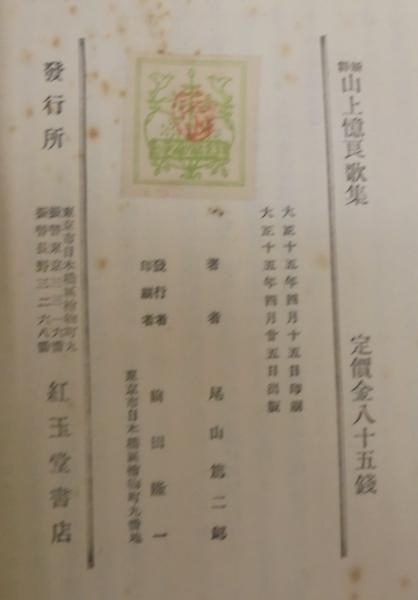 新釋 山上憶良歌集
定價金八十五錢
大正十五年四月十五日印刷
大正十五年四月廿五日出版
著者 尾山篤二郎
發行者
印刷者
前田隆一
東京市日本橋區檜物町九番地
發行所
東京市日本橋區檜物町九
振替東京三三一六番
振替長野三二六八番
紅玉堂書店